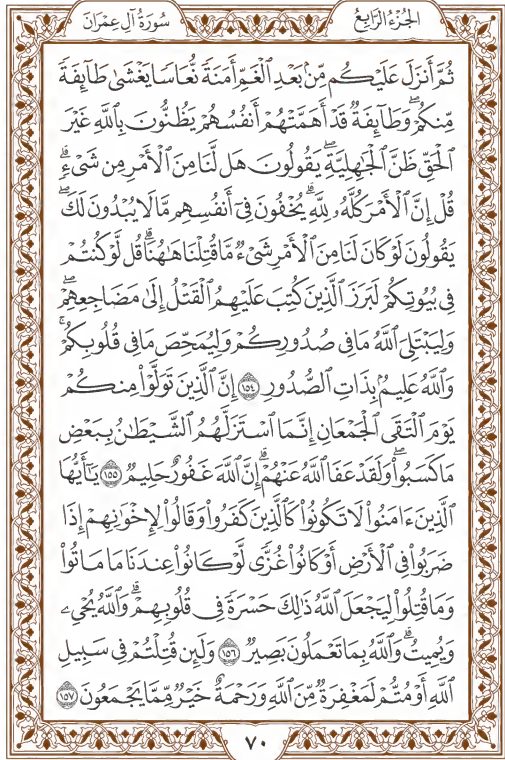 الجُزْءُ الرَّابِعُ
سُورَةُ آلِ عِمْرَانَ
ثُمَّ أَنزَلَ عَلَيْكُم مِّنۢ بَعْدِ ٱلْغَمِّ أَمَنَةً نُّعَاسًا يَغْشَىٰ طَآئِفَةً
مِّنكُمْ ۖ وَطَآئِفَةٌ قَدْ أَهَمَّتْهُمْ أَنفُسُهُمْ يَظُنُّونَ بِٱللَّهِ غَيْرَ
ٱلْحَقِّ ظَنَّ ٱلْجَٰهِلِيَّةِ ۖ يَقُولُونَ هَل لَّنَا مِنَ ٱلْأَمْرِ مِن شَىْءٍ ۗ
قُلْ إِنَّ ٱلْأَمْرَ كُلَّهُۥ لِلَّهِ ۗ يُخْفُونَ فِىٓ أَنفُسِهِم مَّا لَا يُبْدُونَ لَكَ ۖ
يَقُولُونَ لَوْ كَانَ لَنَا مِنَ ٱلْأَمْرِ شَىْءٌ مَّا قُتِلْنَا هَٰهُنَا ۗ قُل لَّوْ كُنتُمْ
فِى بُيُوتِكُمْ لَبَرَزَ ٱلَّذِينَ كُتِبَ عَلَيْهِمُ ٱلْقَتْلُ إِلَىٰ مَضَاجِعِهِمْ ۖ
وَلِيَبْتَلِىَ ٱللَّهُ مَا فِى صُدُورِكُمْ وَلِيُمَحِّصَ مَا فِى قُلُوبِكُمْ ۚ
وَٱللَّهُ عَلِيمٌۢ بِذَاتِ ٱلصُّدُورِ ١٥٤ إِنَّ ٱلَّذِينَ تَوَلَّوْا۟ مِنكُمْ
يَوْمَ ٱلْتَقَى ٱلْجَمْعَانِ إِنَّمَا ٱسْتَزَلَّهُمُ ٱلشَّيْطَٰنُ بِبَعْضِ
مَا كَسَبُوا۟ ۖ وَلَقَدْ عَفَا ٱللَّهُ عَنْهُمْ ۗ إِنَّ ٱللَّهَ غَفُورٌ حَلِيمٌ ١٥٥ يَٰٓأَيُّهَا
ٱلَّذِينَ ءَامَنُوا۟ لَا تَكُونُوا۟ كَٱلَّذِينَ كَفَرُوا۟ وَقَالُوا۟ لِإِخْوَٰنِهِمْ إِذَا
ضَرَبُوا۟ فِى ٱلْأَرْضِ أَوْ كَانُوا۟ غُزًّى لَّوْ كَانُوا۟ عِندَنَا مَا مَاتُوا۟
وَمَا قُتِلُوا۟ لِيَجْعَلَ ٱللَّهُ ذَٰلِكَ حَسْرَةً فِى قُلُوبِهِمْ ۗ وَٱللَّهُ يُحْىِۦ
وَيُمِيتُ ۗ وَٱللَّهُ بِمَا تَعْمَلُونَ بَصِيرٌ ١٥٦ وَلَئِن قُتِلْتُمْ فِى سَبِيلِ
ٱللَّهِ أَوْ مُتُّمْ لَمَغْفِرَةٌ مِّنَ ٱللَّهِ وَرَحْمَةٌ خَيْرٌ مِّمَّا يَجْمَعُونَ ١٥٧
٧٠